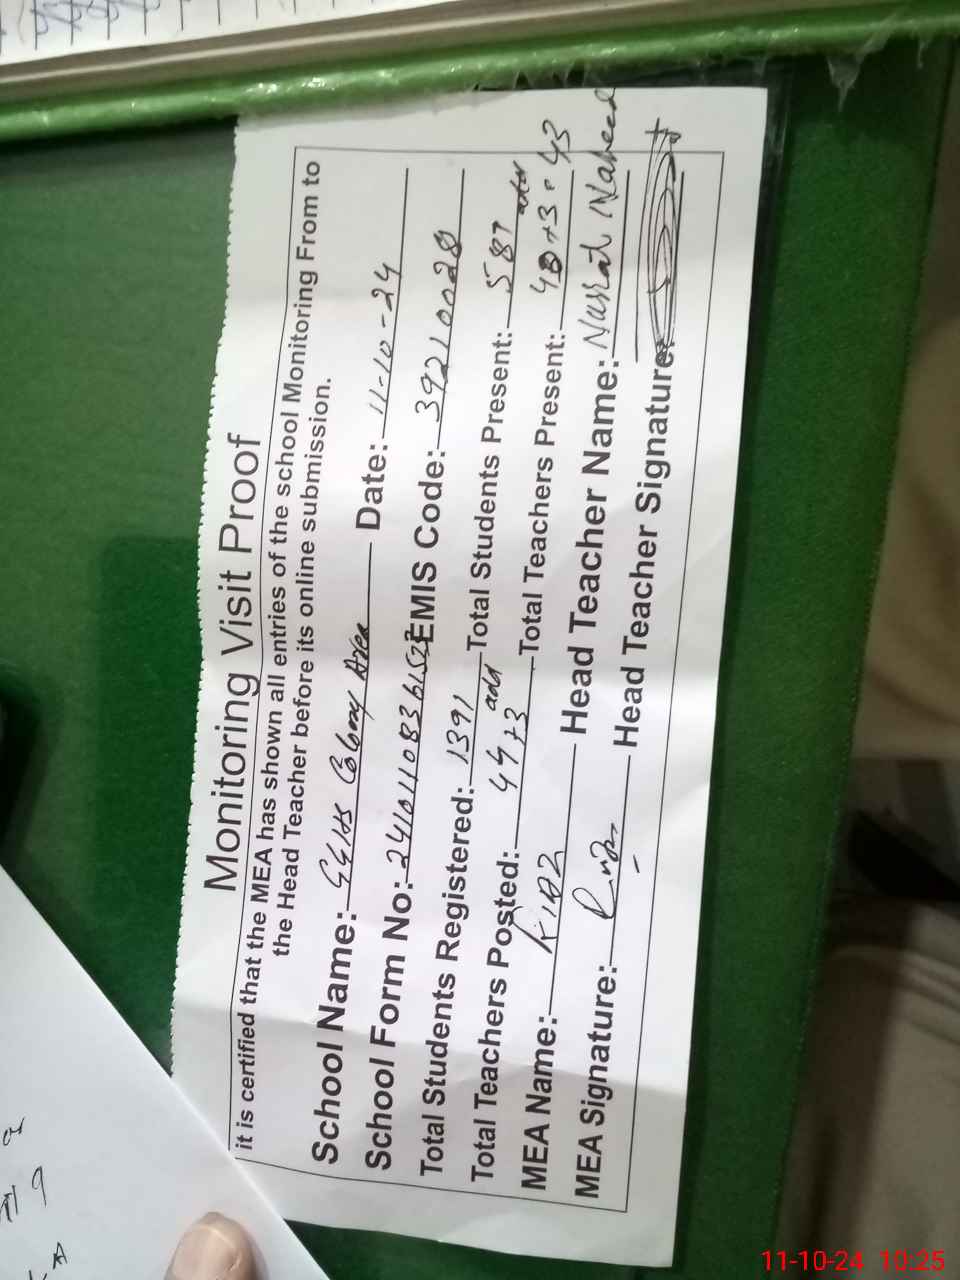 Monitoring Visit Proof
it is certified that the MEA has shown all entries of the school Monitoring From to
the Head Teacher before its online submission.
School Name: GGHS Colony Area Date: 11-10-24
School Form No: EMIS Code: 39210028
Total Students Registered: 1391 Total Students Present: 587
Total Teachers Posted: 44+3 Total Teachers Present: 40+3=43
MEA Name: Head Teacher Name: Nusrat Naheed
MEA Signature: Head Teacher Signature:
11-10-24 10:25